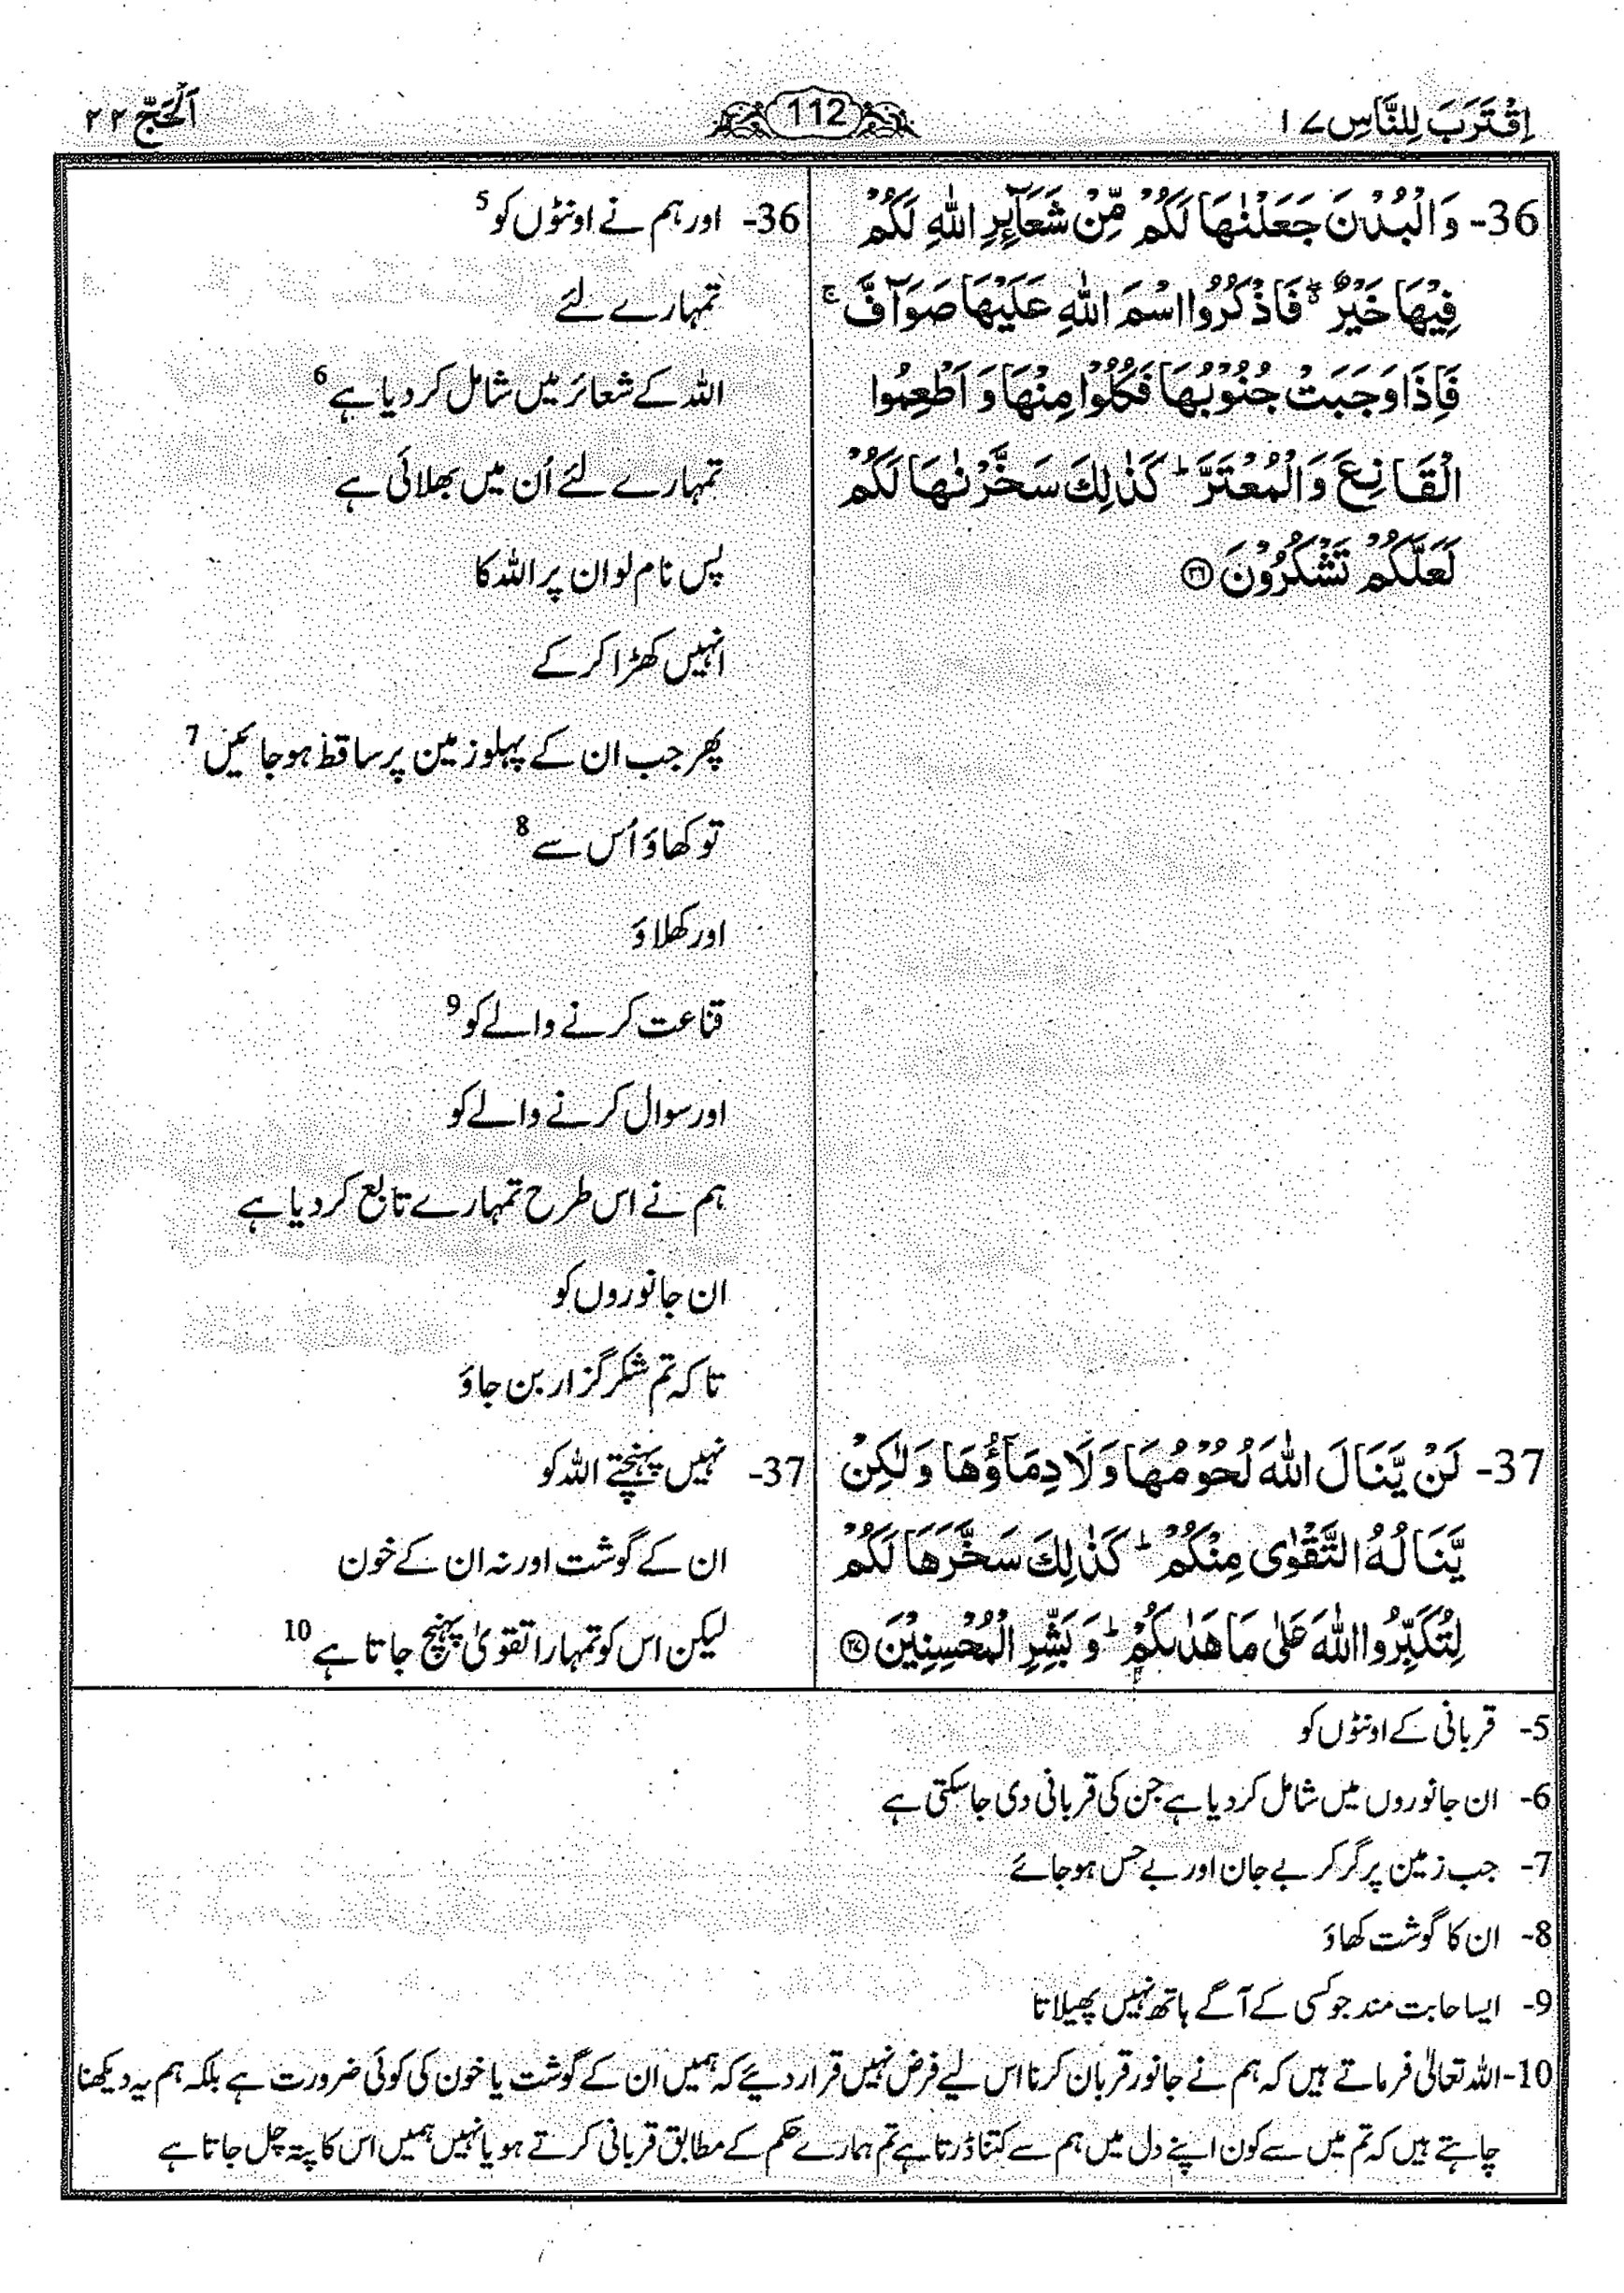 اِقْتَرَبَ لِلنَّاسِ ١٧
112
اَلْحَجّ ٢٢
36- وَالْبُدْنَ جَعَلْنٰهَا لَكُمْ مِّنْ شَعَآئِرِ اللّٰهِ لَكُمْ
فِيْهَا خَيْرٌ ۖ فَاذْكُرُوا اسْمَ اللّٰهِ عَلَيْهَا صَوَآفَّ ۚ
فَاِذَا وَجَبَتْ جُنُوْبُهَا فَكُلُوْا مِنْهَا وَ اَطْعِمُوا
الْقَانِعَ وَ الْمُعْتَرَّ ؕ كَذٰلِكَ سَخَّرْنٰهَا لَكُمْ
لَعَلَّكُمْ تَشْكُرُوْنَ ۝٣٦
37- لَنْ يَّنَالَ اللّٰهَ لُحُوْمُهَا وَ لَا دِمَآؤُهَا وَ لٰكِنْ
يَّنَالُهُ التَّقْوٰى مِنْكُمْ ؕ كَذٰلِكَ سَخَّرَهَا لَكُمْ
لِتُكَبِّرُوا اللّٰهَ عَلٰى مَا هَدٰىكُمْ ؕ وَ بَشِّرِ الْمُحْسِنِيْنَ ۝٣٧
36- اور ہم نے اونٹوں کو 5
تمہارے لئے
اللہ کے شعائر میں شامل کر دیا ہے 6
تمہارے لئے اُن میں بھلائی ہے
پس نام لو ان پر اللہ کا
انہیں کھڑا کر کے
پھر جب ان کے پہلو زمین پر ساقط ہو جائیں 7
تو کھاؤ اُس سے 8
اور کھلاؤ
قناعت کرنے والے کو 9
اور سوال کرنے والے کو
ہم نے اس طرح تمہارے تابع کر دیا ہے
ان جانوروں کو
تا کہ تم شکر گزار بن جاؤ
37- نہیں پہنچتے اللہ کو
ان کے گوشت اور نہ ان کے خون
لیکن اس کو تمہارا تقویٰ پہنچ جاتا ہے 10
5- قربانی کے اونٹوں کو
6- ان جانوروں میں شامل کر دیا ہے جن کی قربانی دی جا سکتی ہے
7- جب زمین پر گر کر بے جان اور بے حس ہو جائے
8- ان کا گوشت کھاؤ
9- ایسا حابت مند جو کسی کے آگے ہاتھ نہیں پھیلاتا
10- اللہ تعالٰی فرماتے ہیں کہ ہم نے جانور قربان کرنا اس لیے فرض نہیں قرار دیئے کہ ہمیں ان کے گوشت یا خون کی کوئی ضرورت ہے بلکہ ہم یہ دیکھنا
چاہتے ہیں کہ تم میں سے کون اپنے دل میں ہم سے کتنا ڈرتا ہے تم ہمارے حکم کے مطابق قربانی کرتے ہو یا نہیں ہمیں اس کا پتہ چل جاتا ہے